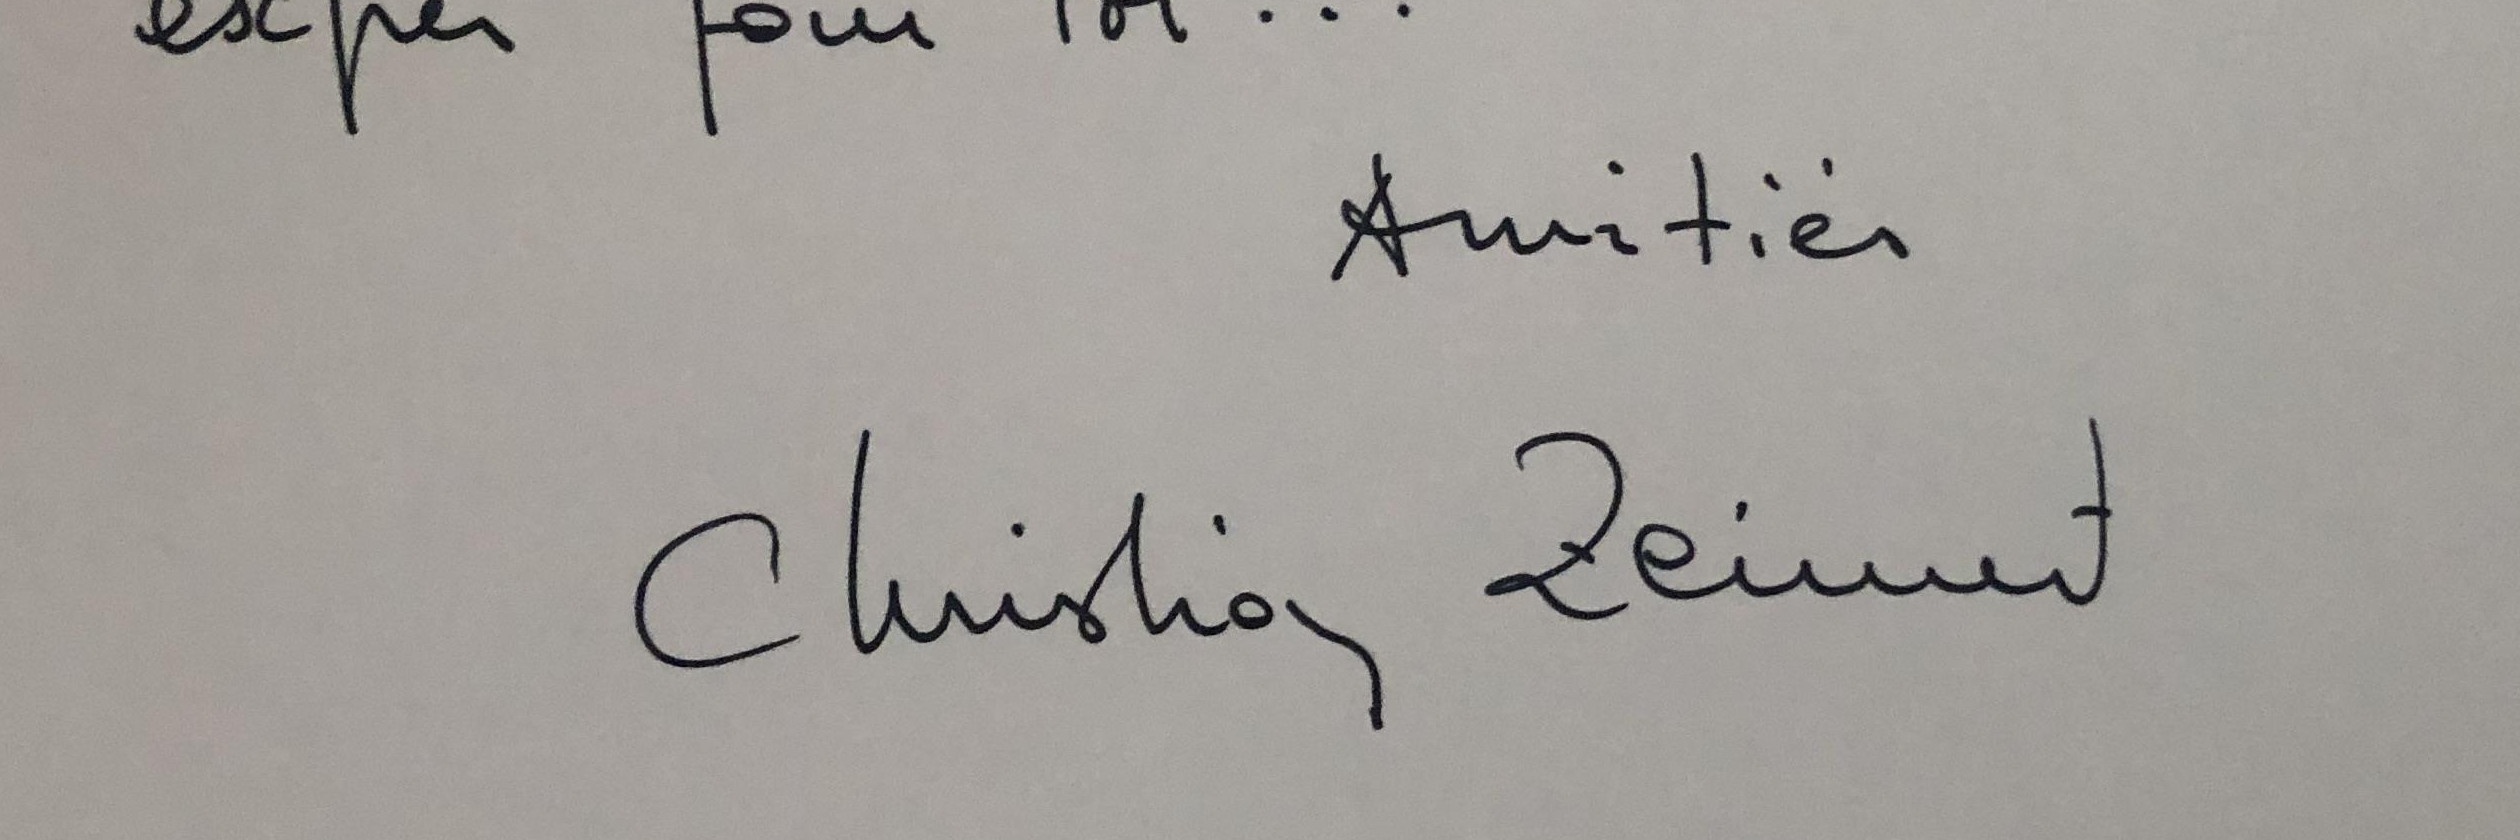 pour toi...
Amitiés
Christian Zeimert